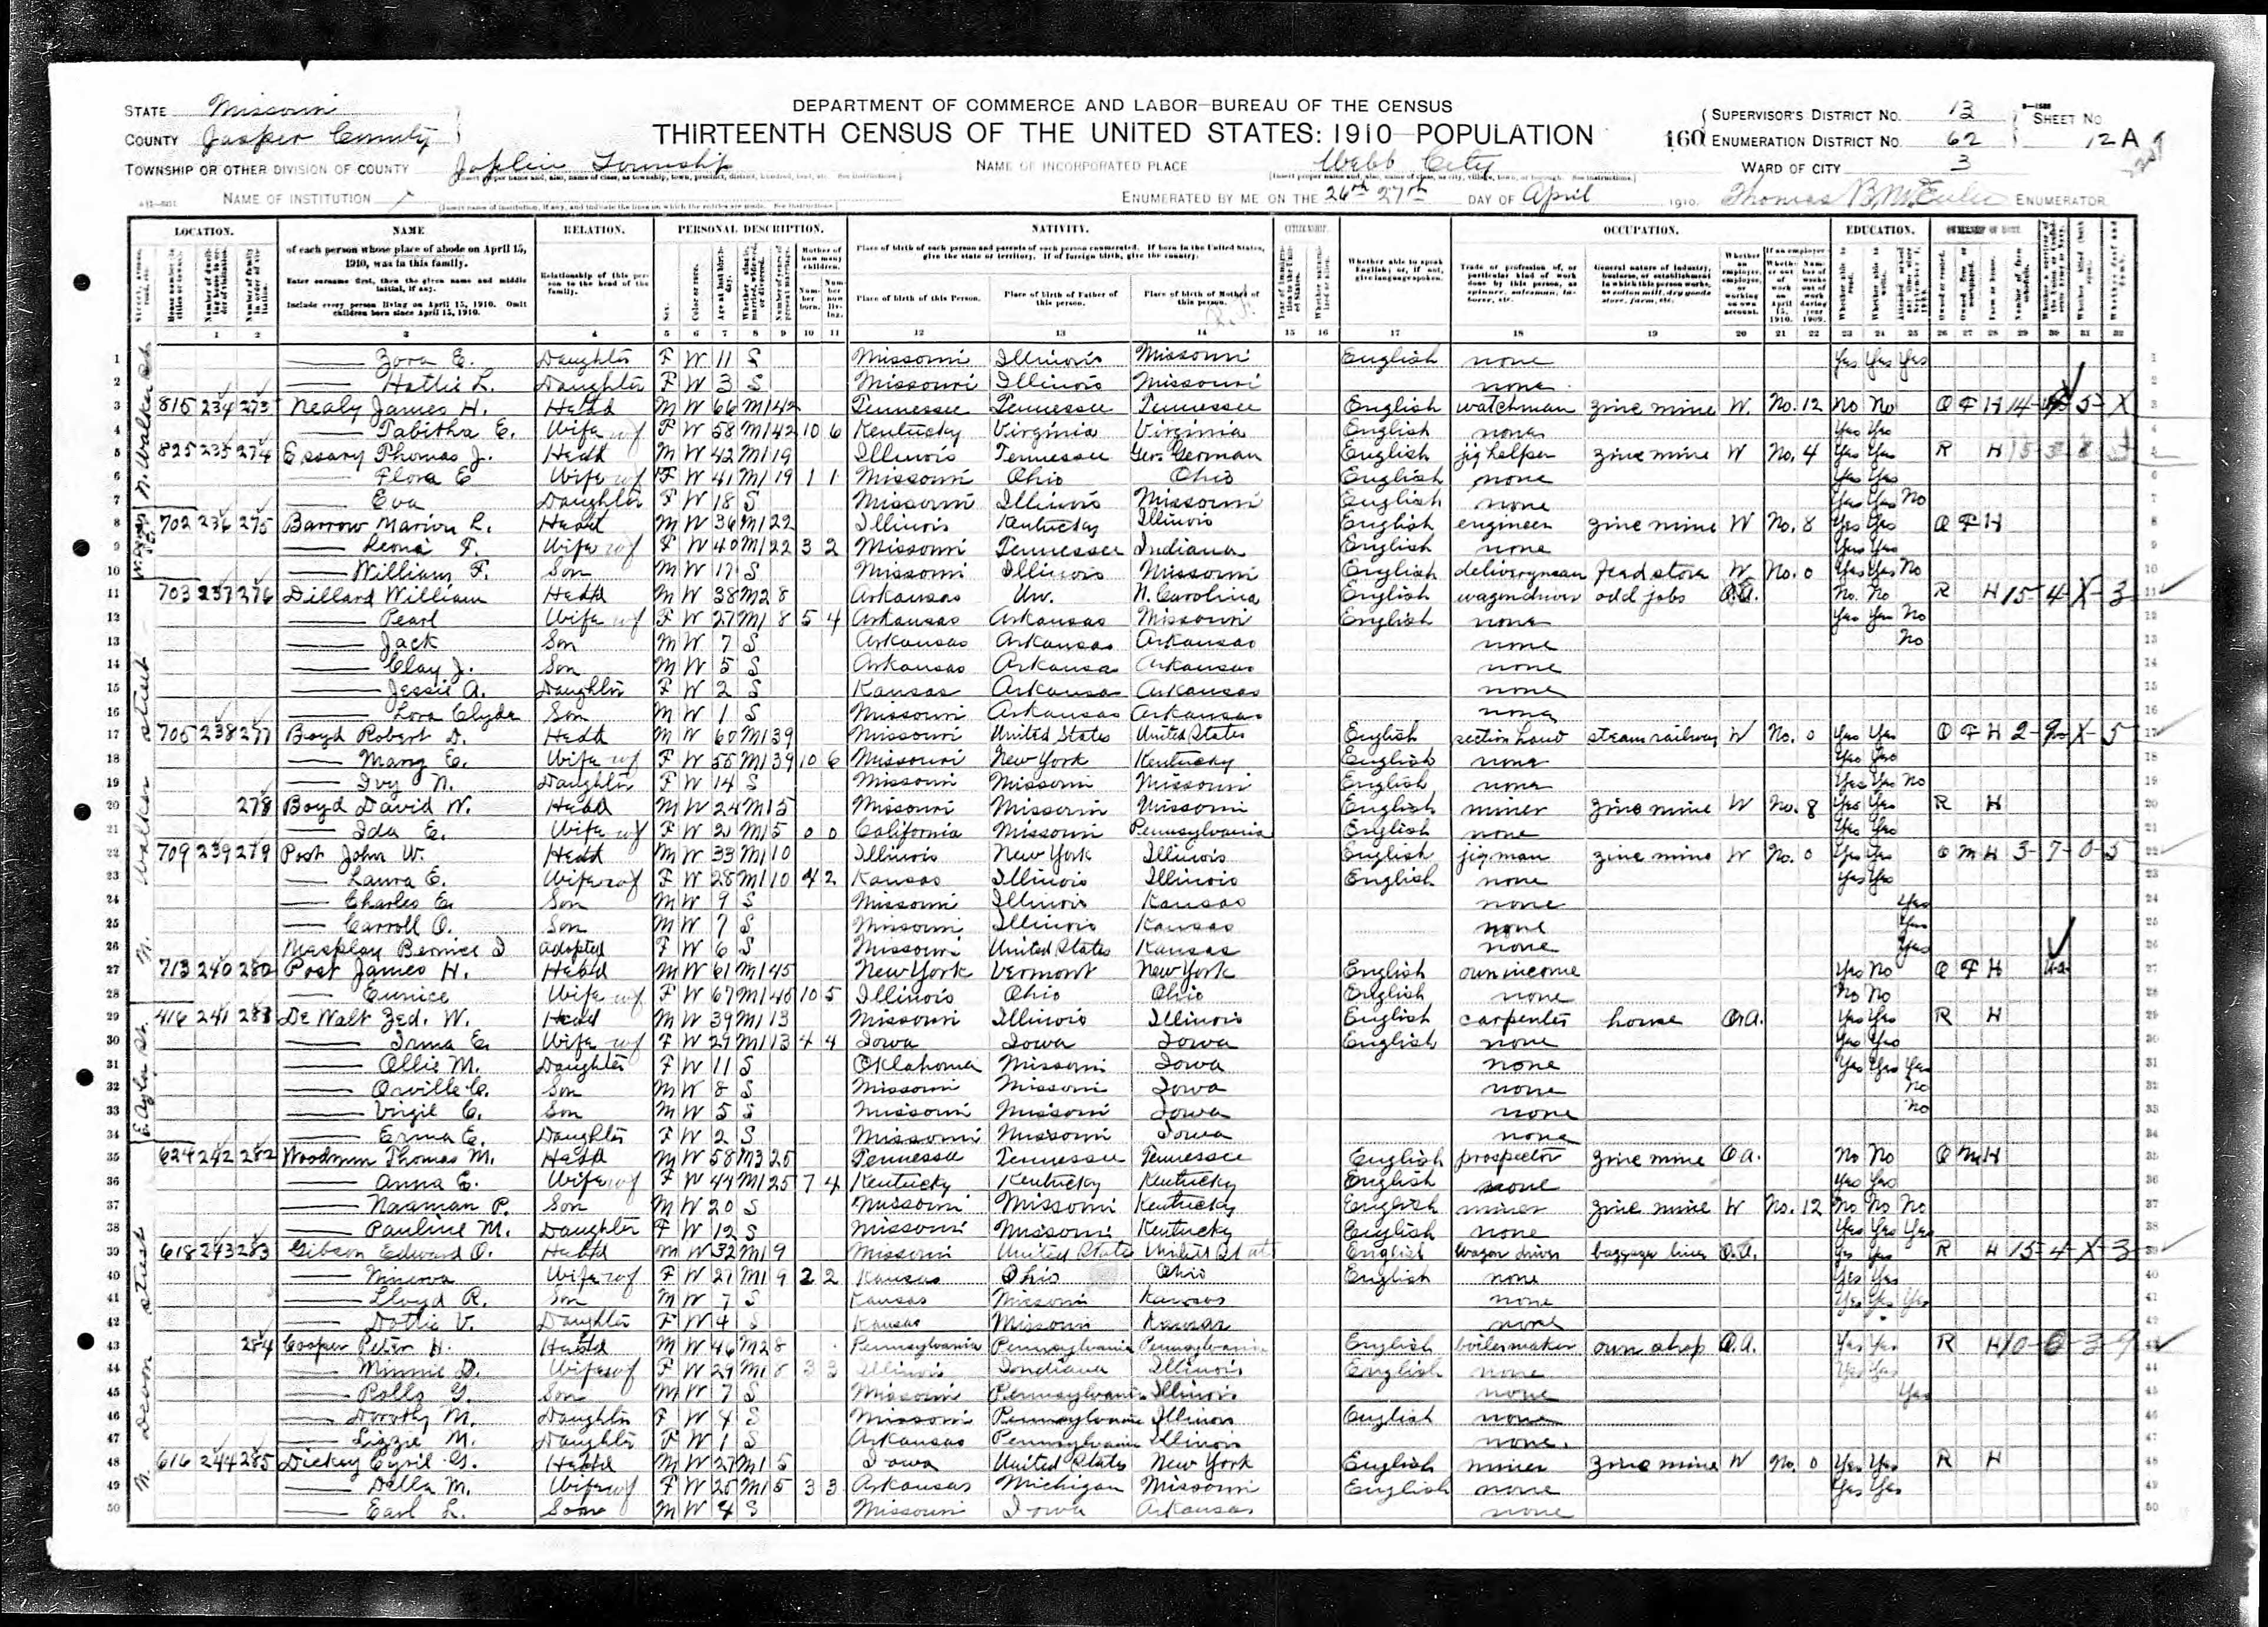 DEPARTMENT OF COMMERCE AND LABOR—BUREAU OF THE CENSUS
THIRTEENTH CENSUS OF THE UNITED STATES: 1910—POPULATION
STATE Missouri
COUNTY Jasper County
TOWNSHIP OR OTHER DIVISION OF COUNTY Joplin Township
NAME OF INSTITUTION X
NAME OF INCORPORATED PLACE Webb City
ENUMERATED BY ME ON THE 26th 27th DAY OF April 1910.
SUPERVISOR'S DISTRICT No. 13
160 ENUMERATION DISTRICT No. 62
SHEET No 12 A
WARD OF CITY 3
Thomas B. ENUMERATOR
LOCATION. NAME RELATION. PERSONAL DESCRIPTION. NATIVITY. CITIZENSHIP. OCCUPATION. EDUCATION. OWNERSHIP OF HOME.
of each person whose place of abode on April 15, 1910, was in this family.
Enter surname first, then the given name and middle initial, if any.
Include every person living on April 15, 1910. Omit children born since April 15, 1910.
Relationship of this person to the head of the family.
Place of birth of each person and parents of each person enumerated. If born in the United States, give the state or territory. If of foreign birth, give the country.
Place of birth of this Person. Place of birth of Father of this person. Place of birth of Mother of this person.
1 2 3 4 5 6 7 8 9 10 11 12 13 14 15 16 17 18 19 20 21 22 23 24 25 26 27 28 29 30 31 32
1 Zora E. Daughter F W 11 S Missouri Illinois Missouri English none Yes Yes Yes
2 Hattie L. Daughter F W 3 S Missouri Illinois Missouri none
3 815 234 273 Nealy James H. Head M W 66 M1 42 Tennessee Tennessee Tennessee English watchman zinc mine W No. 12 No No O F H 14
4 Tabitha E. Wife F W 58 M1 42 10 6 Kentucky Virginia Virginia English none Yes Yes
5 825 235 274 Essary Thomas J. Head M W 42 M1 19 Illinois Tennessee Ger. German English jig helper zinc mine W No. 4 Yes Yes R H
6 Flora E Wife F W 41 M1 19 1 1 Missouri Ohio Ohio English none Yes Yes
7 Eva Daughter F W 18 S Missouri Illinois Missouri English none Yes Yes No
8 702 236 275 Barrow Marion L. Head M W 36 M1 22 Illinois Kentucky Illinois English engineer zinc mine W No. 8 Yes Yes O F H
9 Leona F. Wife F W 40 M1 22 3 2 Missouri Tennessee Indiana English none Yes Yes
10 William F. Son M W 17 S Missouri Illinois Missouri English deliveryman feed store W No. 0 Yes Yes No
11 703 237 276 Dillard William Head M W 38 M2 8 Arkansas Un. N. Carolina English wagon driver odd jobs O.A. No. No R H 15-4-X-3
12 Pearl Wife F W 27 M1 8 5 4 Arkansas Arkansas Missouri English none Yes Yes No
13 Jack Son M W 7 S Arkansas Arkansas Arkansas none No
14 Clay J. Son M W 5 S Arkansas Arkansas Arkansas none
15 Jessie A. Daughter F W 2 S Kansas Arkansas Arkansas none
16 Lora Clyde Son M W 1 S Missouri Arkansas Arkansas none
17 705 238 277 Boyd Robert D. Head M W 60 M1 39 Missouri United States United States English section hand steam railway W No. 0 Yes Yes O F H 2-9-X-5
18 Mary E. Wife F W 55 M1 39 10 6 Missouri New York Kentucky English none Yes Yes
19 Ivy N. Daughter F W 14 S Missouri Missouri Missouri English none Yes Yes No
20 278 Boyd David W. Head M W 24 M1 5 Missouri Missouri Missouri English miner zinc mine W No. 8 Yes Yes R H
21 Ida E. Wife F W 21 M1 5 0 0 California Missouri Pennsylvania English none Yes Yes
22 709 239 279 Post John W. Head M W 33 M1 10 Illinois New York Illinois English jig man zinc mine W No. 0 Yes Yes O M H 3-7-0-5
23 Laura E. Wife F W 28 M1 10 4 2 Kansas Illinois Illinois English none Yes Yes
24 Charles E. Son M W 9 S Missouri Illinois Kansas none Yes
25 Carroll O. Son M W 7 S Missouri Illinois Kansas none Yes
26 Bernice D adopted F W 6 S Missouri United States Kansas none Yes
27 713 240 280 Post James H. Head M W 61 M1 45 New York Vermont New York English own income Yes No O F H ua
28 Eunice Wife F W 67 M1 45 10 5 Illinois Ohio Ohio English none No No
29 416 241 281 De Walt Zed. W. Head M W 39 M1 13 Missouri Illinois Illinois English carpenter house O.A. Yes Yes R H
30 Irma E. Wife F W 29 M1 13 4 4 Iowa Iowa Iowa English none Yes Yes
31 Ollie M. Daughter F W 11 S Oklahoma Missouri Iowa none Yes Yes Yes
32 Orville C. Son M W 8 S Missouri Missouri Iowa none No
33 Virgil C. Son M W 5 S Missouri Missouri Iowa none No
34 Erma E. Daughter F W 2 S Missouri Missouri Iowa none
35 624 242 282 Thomas M. Head M W 58 M3 25 Tennessee Tennessee Tennessee English prospector zinc mine O.A. No No O M H
36 Anna E. Wife F W 44 M1 25 7 4 Kentucky Kentucky Kentucky English none Yes Yes
37 Naaman P. Son M W 20 S Missouri Missouri Kentucky English miner zinc mine W No. 12 No No No
38 Pauline M. Daughter F W 12 S Missouri Missouri Kentucky English none Yes Yes Yes
39 618 243 283 Gibson Edward O. Head M W 32 M1 9 Missouri United States United States English wagon driver baggage line O.A. Yes Yes R H 15-4-X-3
40 Minerva Wife F W 27 M1 9 2 2 Kansas Ohio Ohio English none Yes Yes
41 Lloyd R. Son M W 7 S Kansas Missouri Kansas none Yes Yes Yes
42 Dottie V. Daughter F W 4 S Kansas Missouri Kansas none
43 284 Cooper Peter H. Head M W 46 M2 8 Pennsylvania Pennsylvania Pennsylvania English boilermaker own shop O.A. Yes Yes R H
44 Minnie D. Wife F W 29 M1 8 3 3 Illinois Indiana Illinois English none Yes Yes
45 Rollo G. Son M W 7 S Missouri Pennsylvania Illinois none Yes
46 Dorothy M. Daughter F W 4 S Missouri Pennsylvania Illinois English none
47 Lizzie M. Daughter F W 1 S Arkansas Pennsylvania Illinois none.
48 616 244 285 Dickey Cyril G. Head M W 27 M1 5 Iowa United States New York English miner zinc mine W No. 0 Yes Yes R H
49 Della M. Wife F W 25 M1 5 3 3 Arkansas Michigan Missouri English none Yes Yes
50 Earl L. Son M W 4 S Missouri Iowa Arkansas none